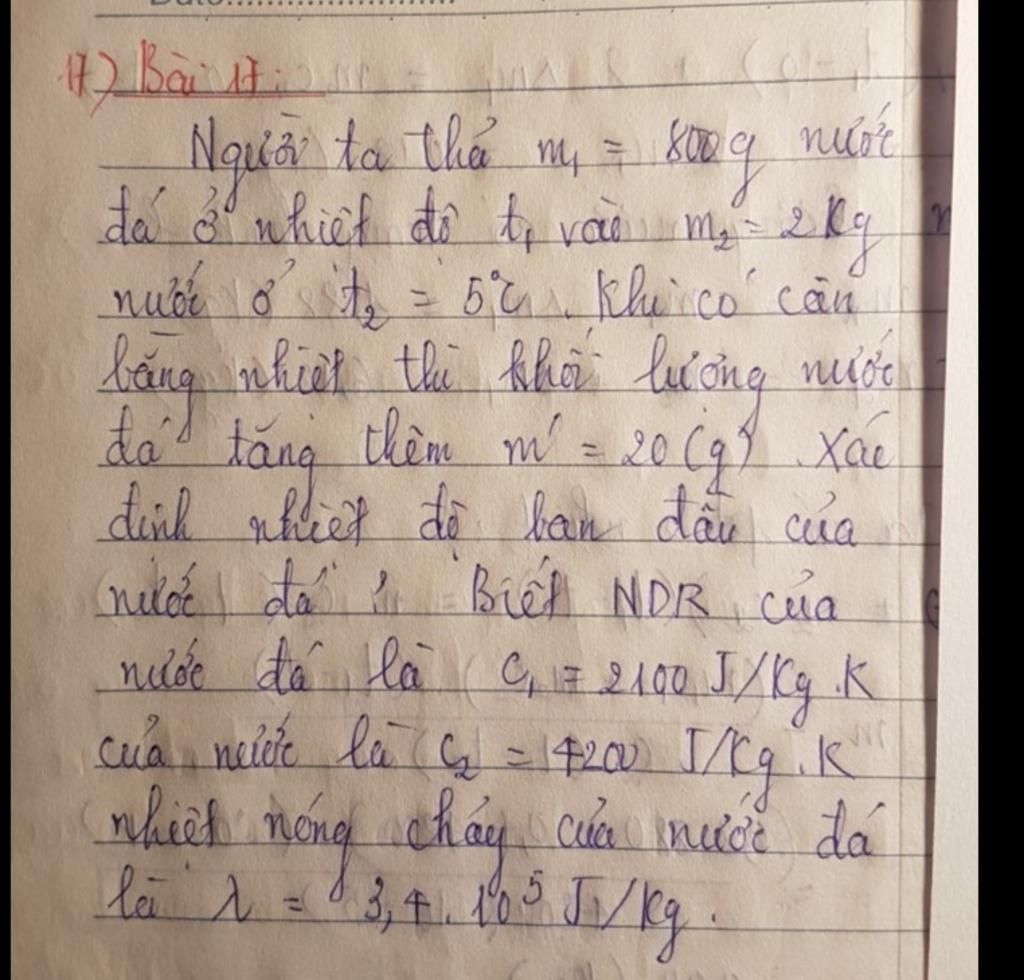 17) Bài 17:
Người ta thả m₁ = 800g nước
đá ở nhiệt độ t₁ vào m₂ = 2 Kg
nước ở t₂ = 5°C. Khi có cân
bằng nhiệt thì khối lượng nước
đá tăng thêm m' = 20 (g). Xác
định nhiệt độ ban đầu của
nước đá ? Biết NDR của
nước đá là C₁ = 2100 J/Kg.K
của nước là C₂ = 4200 J/Kg.K
nhiệt nóng chảy của nước đá
là λ = 3,4.10⁵ J/Kg.